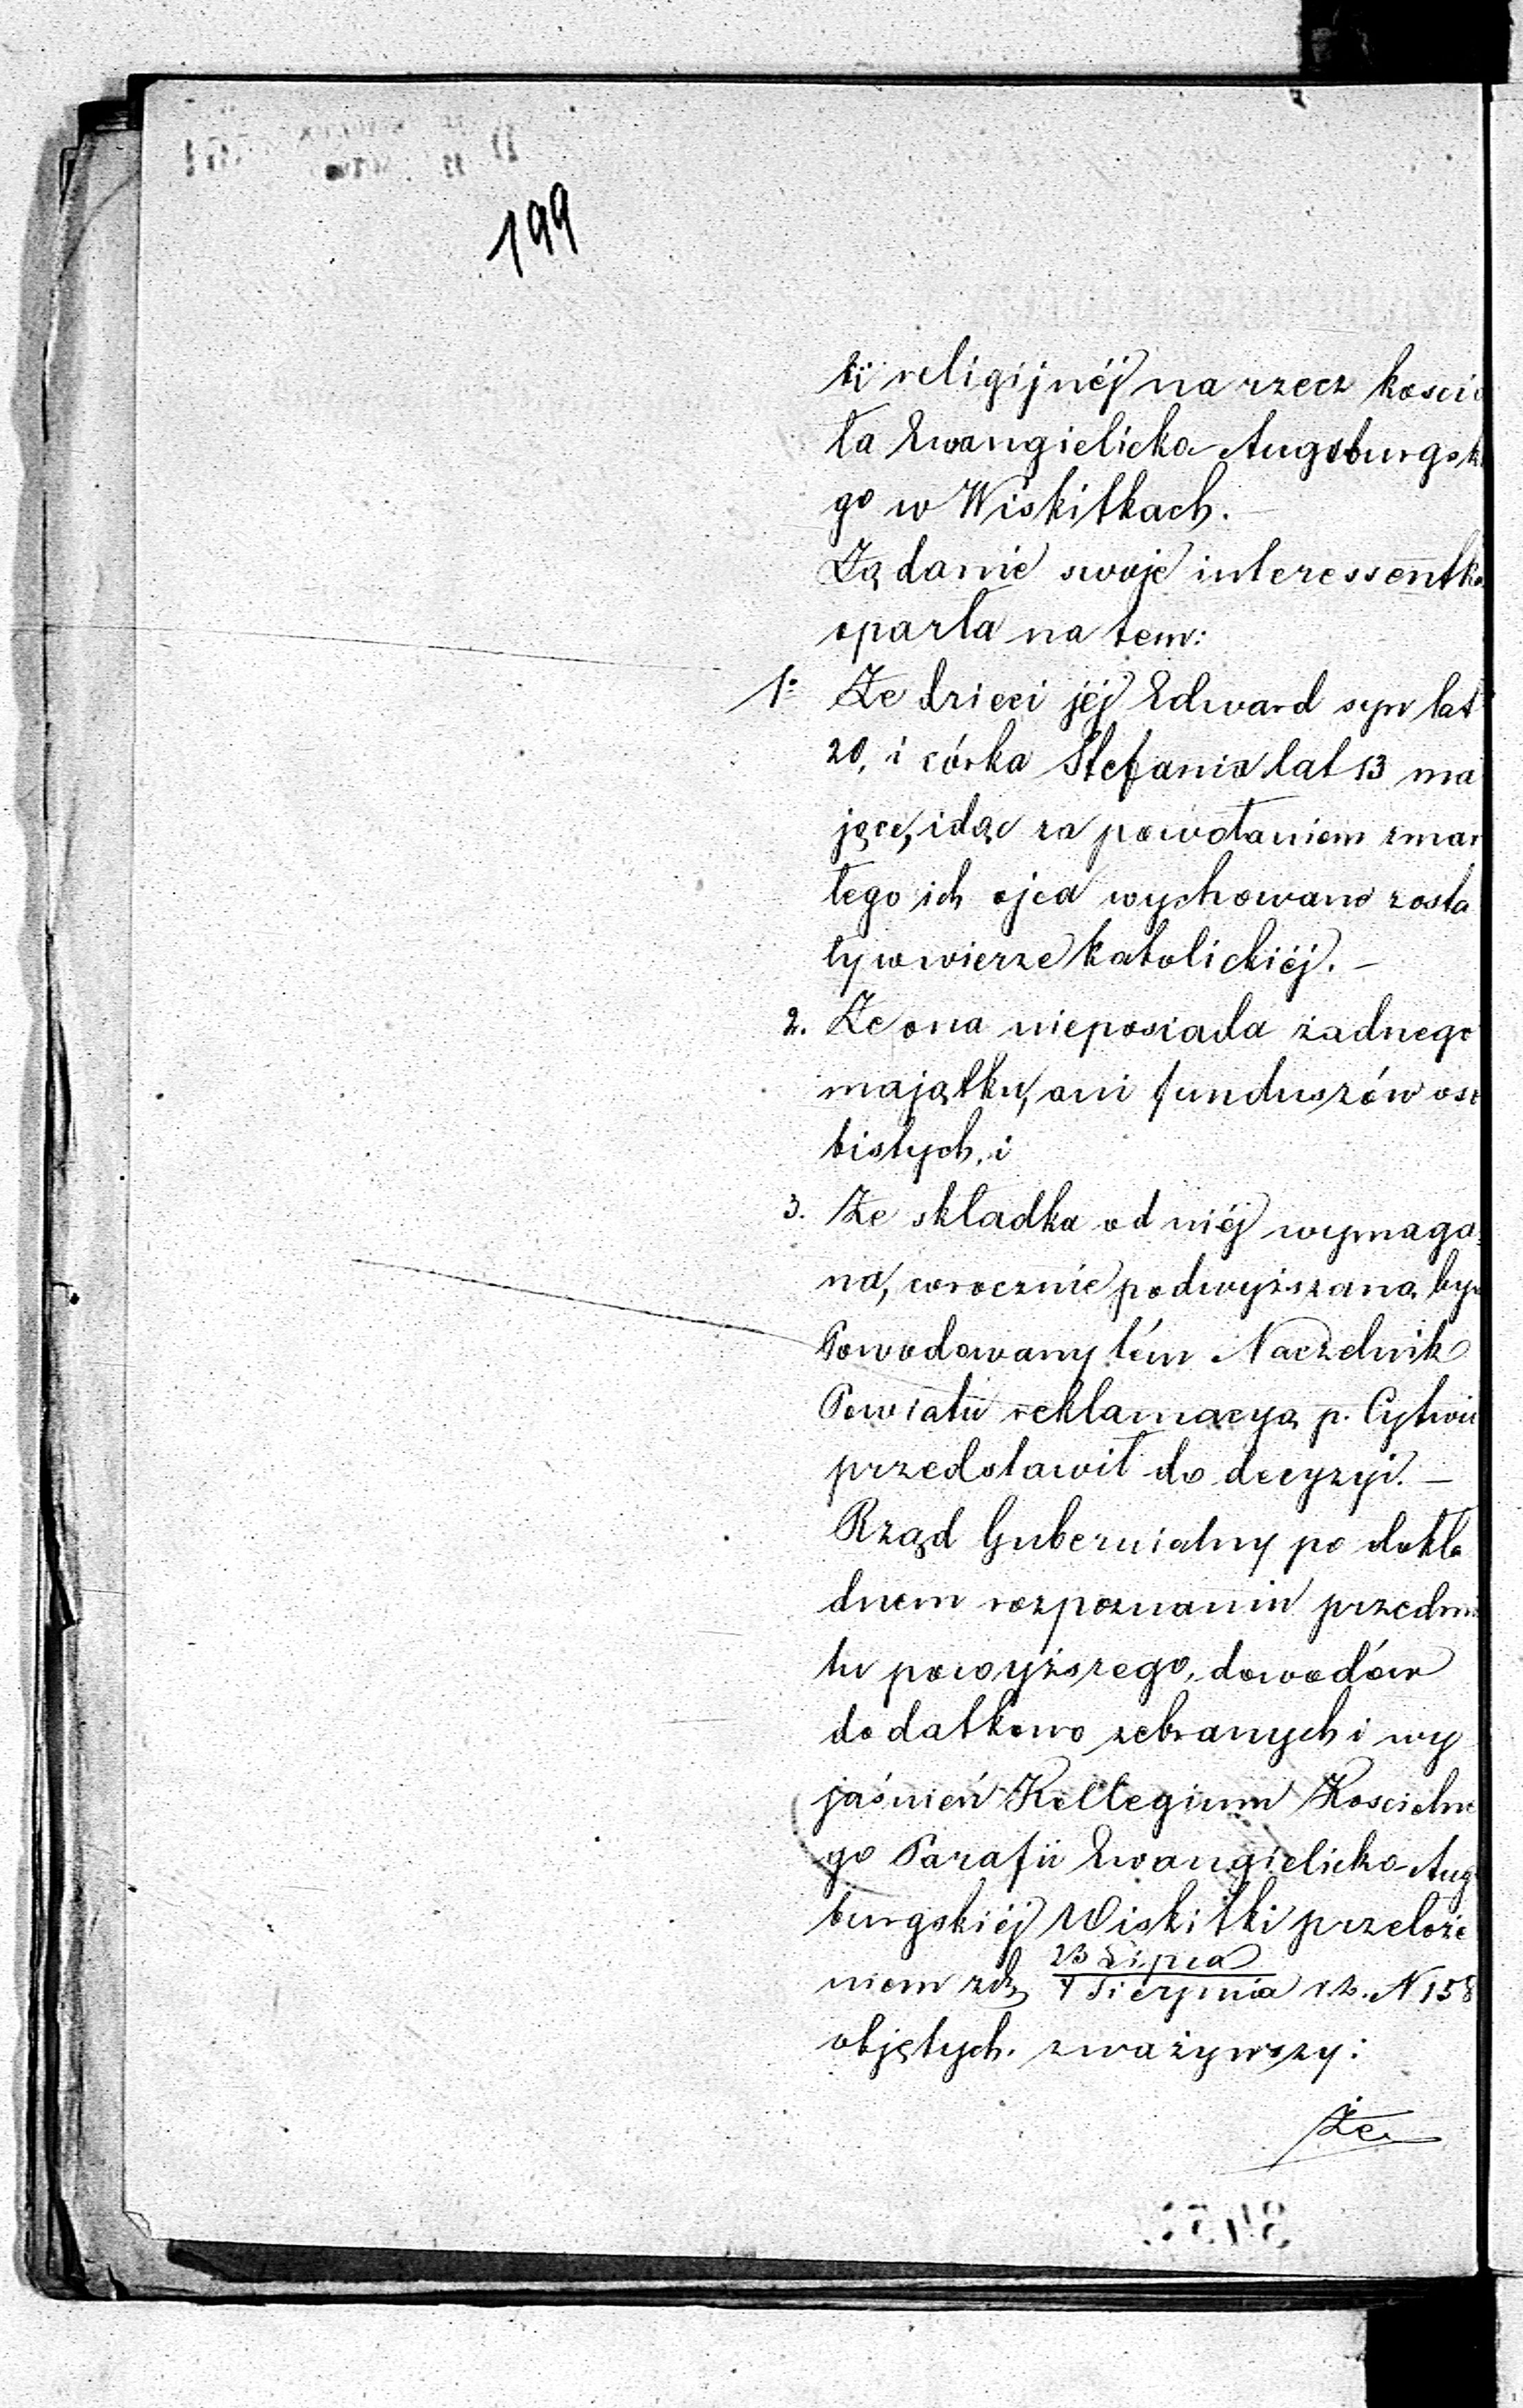 199
ki religijnéj na rzecz kościo
ła Ewangielicko-Augsburgski
go w Wiskitkach.
Żądanie swoje interessentka
oparła na tem:
1º Że dzieci jéj Edward syn lat
20, i córka Stefania lat 13 ma
jące, idąc za powołaniem zmar
łego ich ojca wychowane zosta
ły w wierze katolickiéj. —
2. Że ona nieposiada żadnego
majątku, ani funduszów oso
bistych, i
3. Że składka od niéj wymaga-
na, corocznie podwyższaną by
Powodowany tém Naczelnik
Powiatu reklamacyą p. Cytwi
przedstawił do decyzyi. —
Rząd Gubernialny po dokła
dnem rozpoznaniu przedmi
tu powyższego, dowodów
dodatkowo zebranych i wy
jaśnień Kollegium Kościelne
go Parafii Ewangielicko-Aug
burgskiéj Wiskitki przełoże
niem z dn. 23 Lipca
4 Sierpnia r. b. N 158
objętych. zważywszy:
Że